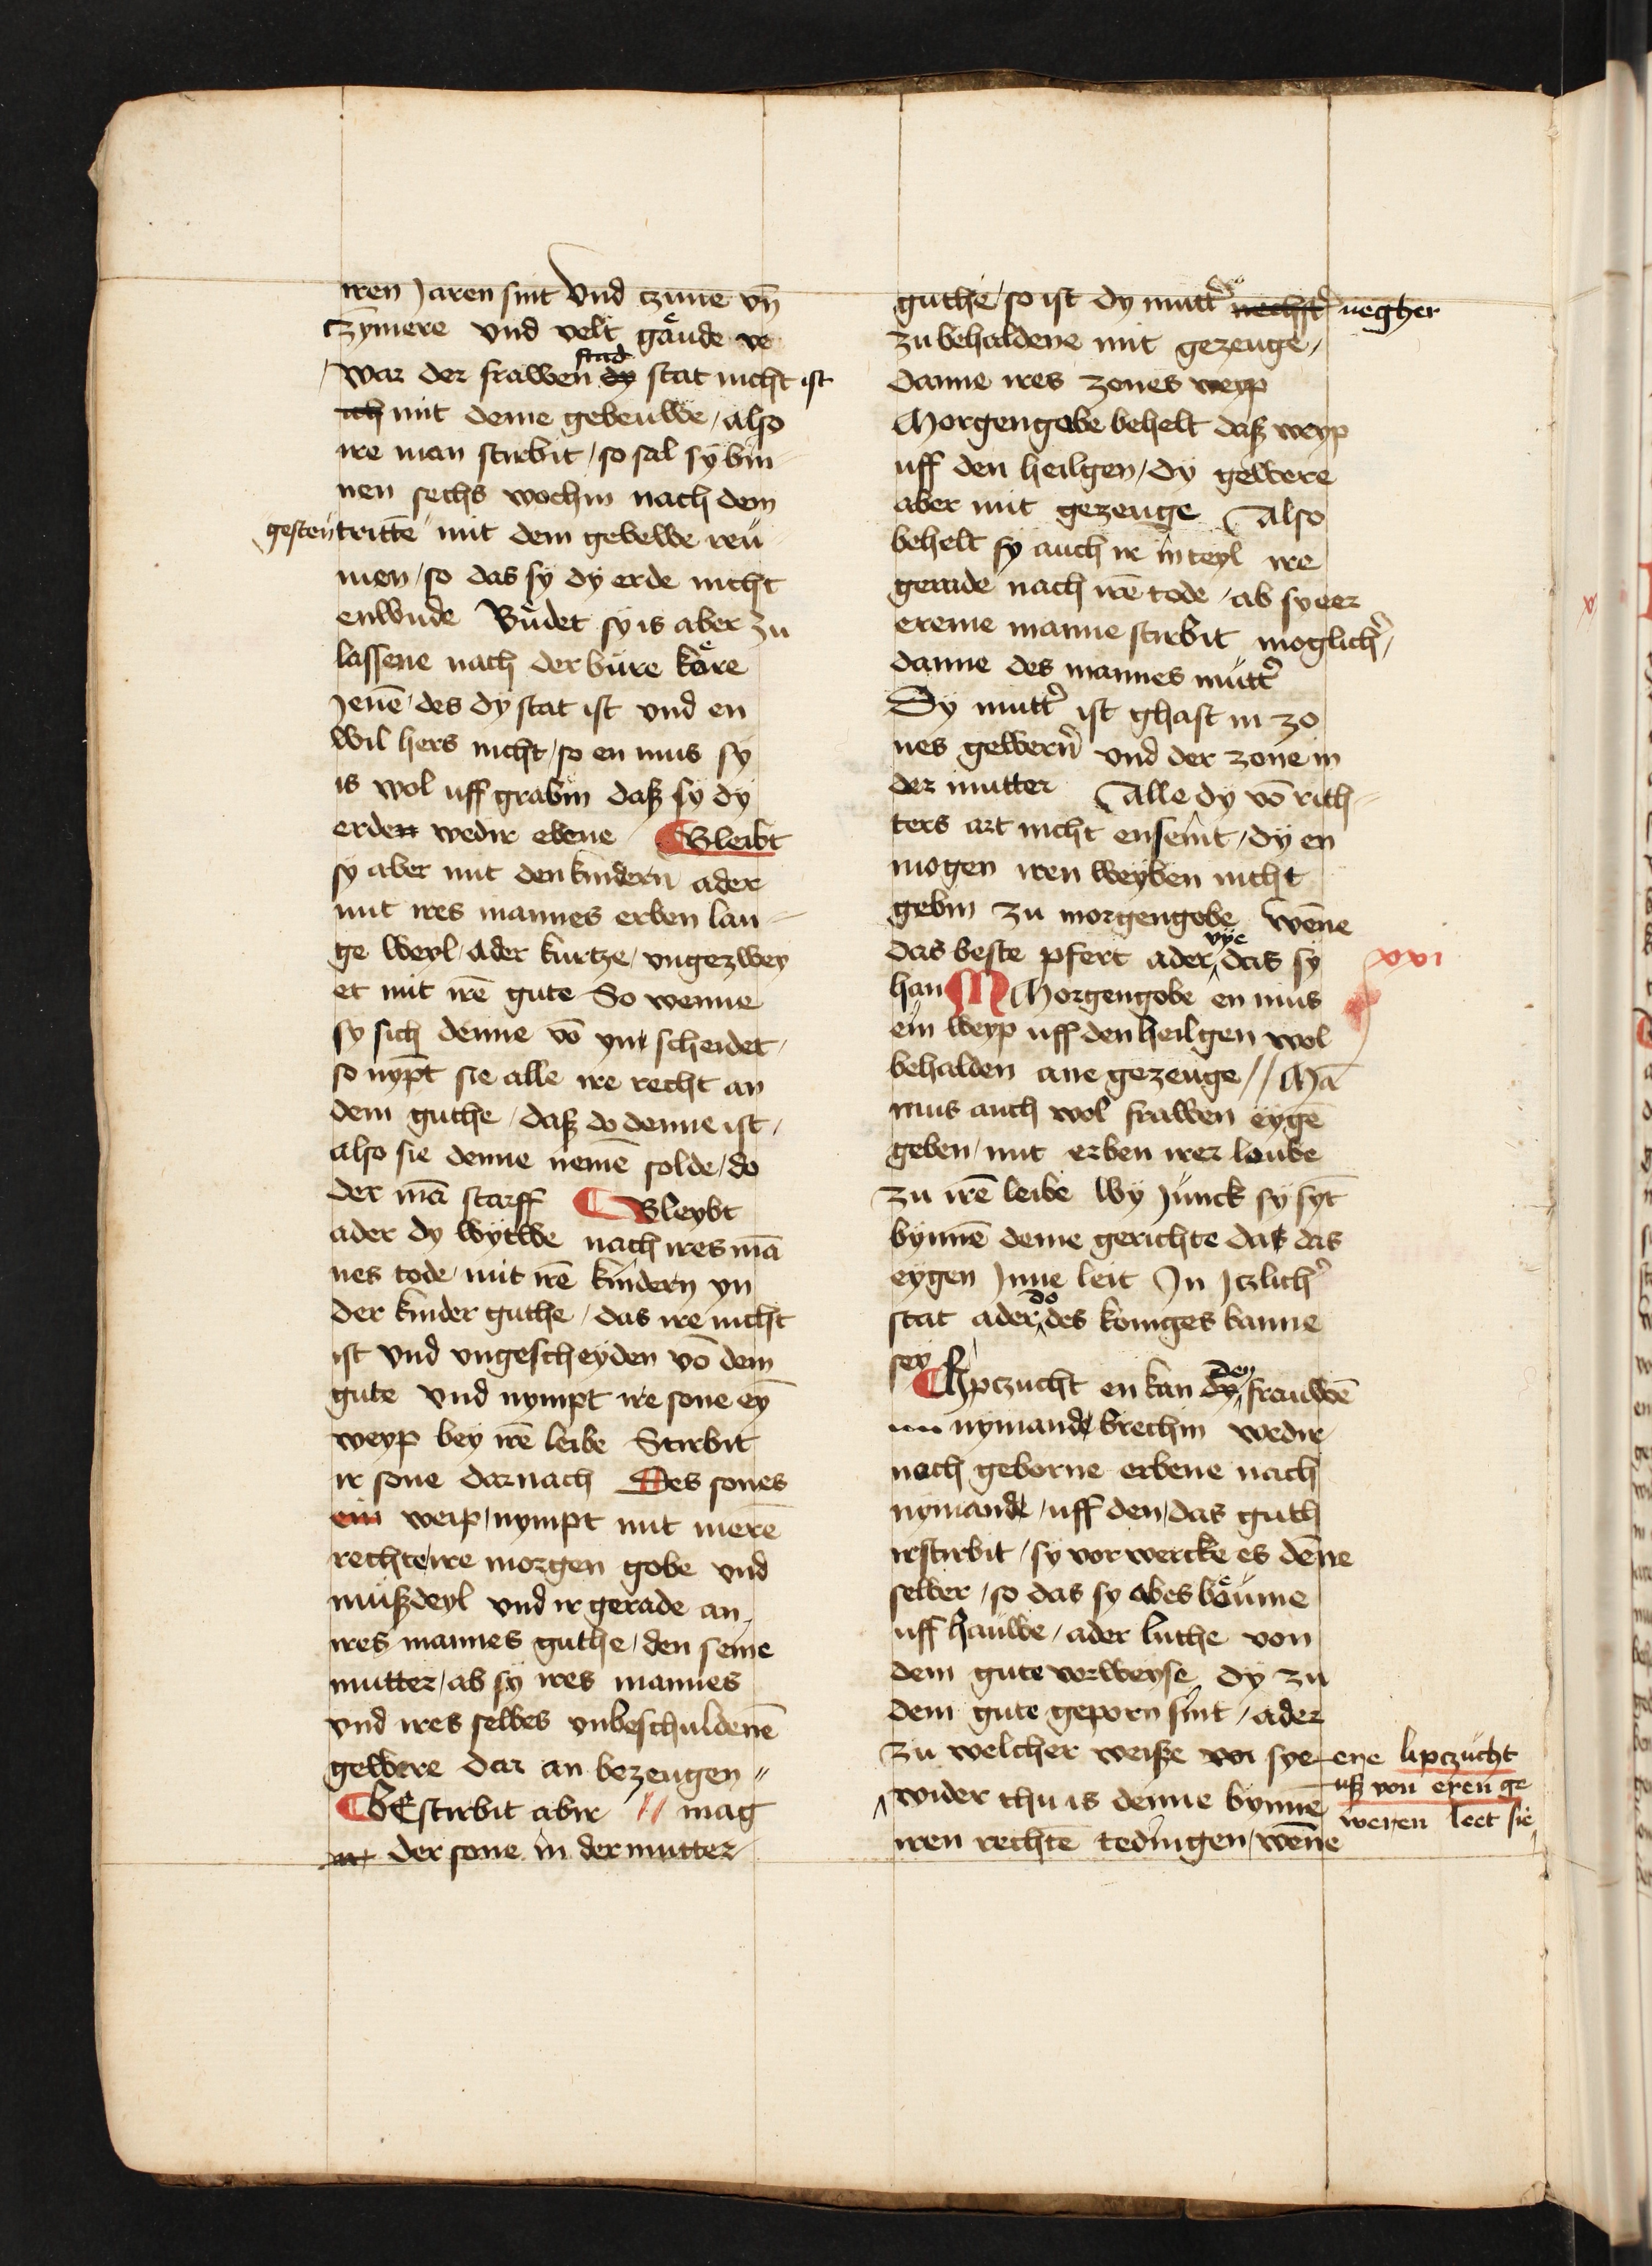 iren Jaren sint Vnd czune vn̄
czymere vnd velt gaͤude ve
war der frawen stad dy stat nicht ist
ich mit deme gebeuwe / also
ire man stirbit / so sal sy bin
nen sechs wochin nach dem
gesten tritte mit dem gebewde reu
men / so das sy dy erde nicht
enwnde Buͤdet sy is aber zu
lassene nach der bure koͤre
Jenē / des dy stat ist vnd en
wil hers nicht / so en mus sy
is wol uff grabin daß sy dy
erden wedir ebene Bleibt
sy aber mit den kindern ader
mit ires mannes erben lan
ge weyl / ader kurtze / vngezwey
et mit irē gute So wenne
sy sich denne vō ym scheidet /
so nypt sie alle ire recht an
dem guthe / daß do denne ist /
also sie denne nemē solde / do
der mā starff Bleybt
ader dy wytwe nach ires mā
nes tode / mit irē kindern yn
der kinder guthe / das ire nicht
ist vnd vngescheyden vō dem
gute vnd nympt ire sone eȳ
weyp bey irē leibe Stirbit
ir sone darnach Des sones
ein weip / nympt mit merē
rechte ire morgen gobe vnd
mußdeyl vnd ir gerade an
ires mannes guthe / den seine
mutter / ab sy ires mannes
vnd ires selbes vnbeschuldenē
gewere dar an bezeugen //
bEstirbit abir // mag
der sone in der mutter
guthe / so ist dy mutt' nechst' negher
zu behaldene mit gezeuge /
danne ires zones weyp
Morgengobe behelt daß weyp
uff den heilgen / dy gewere
aber mit gezeuge Also
behelt sy auch ir in teyl ire
gerade nach irē tode / ab sy eer
ereme manne stirbit moglich' /
danne des mannes mutt'
Dy mutt' ist ghast in zo
nes gewern' vnd der zone in
der mutter Alle dy vō rich
ters art nicht enseint / dy en
mogen iren weyben nicht
gebin zu morgengobe wēne
das beste pfert ader vye das sy
han Morgengobe en mus xvi
ein weyp uff den heilgen wol
behalden ane gezeuge // Mā
mus auch wol frawen eygē
geben / mit erben irer loube
zu irē leibe wy Junck sy syt
bynnē deme gerichte das das
eygen Jnne leit Jn Jczlich'
stat ader do des koniges banne
sey
lipczucht en kan dy den frauwē
nymande brechin wedir
noch geborne erbene nach
nymande / uff den / das guth
irstirbit / sy vorwercke es dēne
selber / so das sy obes boͤume
uff hauwe / ader luthe von
dem gute vorweyse / dy zu
dem gute geporn sint / ader
zu welcher weiße sye ene lipczucht
uß von eren ge
weren leet sie
wider thu is denne bynnē
iren rechtē tedingen / wēne